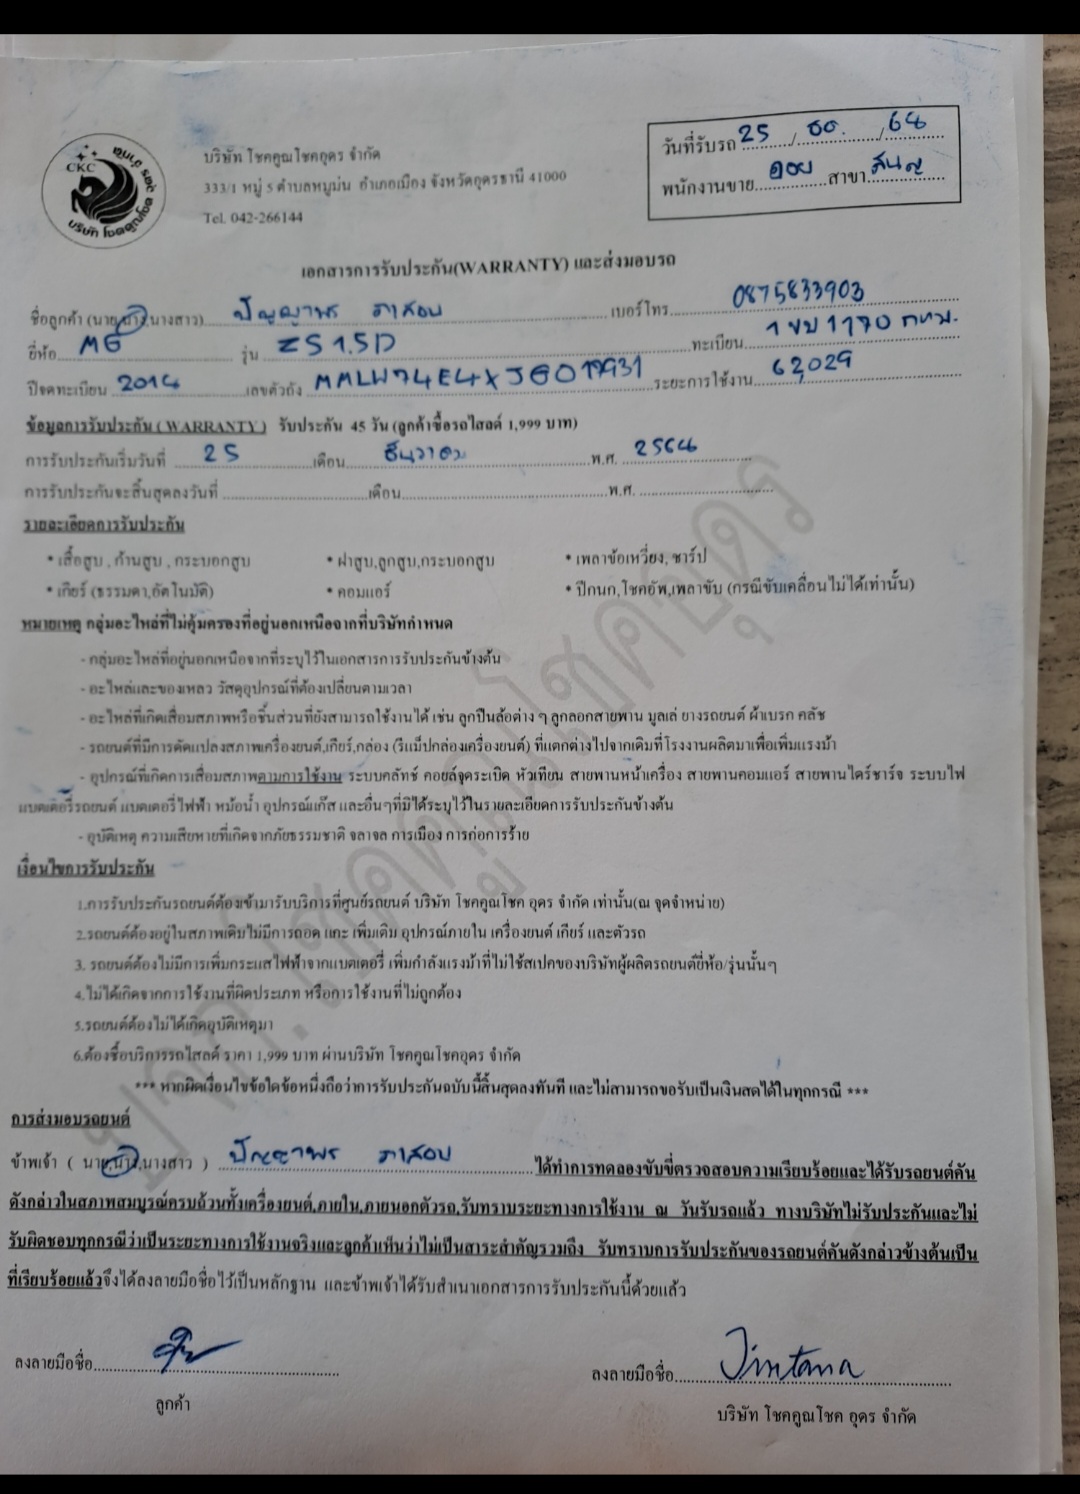 CKC
บริษัท โชคคูณโชค อุดร จำกัด
บริษัท โชคคูณโชคอุดร จำกัด
333/1 หมู่ 5 ตำบลหมูม่น อำเภอเมือง จังหวัดอุดรธานี 41000
Tel. 042-266144
วันที่รับรถ 25 / ธค. / 68
พนักงานขาย สาขา
เอกสารการรับประกัน(WARRANTY) และส่งมอบรถ
ชื่อลูกค้า (นาย,นาง,นางสาว) ภาสอน เบอร์โทร 0875833903
ยี่ห้อ MG รุ่น ZS 1.5D ทะเบียน 1 ขบ 1170 กทม.
ปีจดทะเบียน 2014 เลขตัวถัง ระยะการใช้งาน 62,029
ข้อมูลการรับประกัน ( WARRANTY ) รับประกัน 45 วัน (ลูกค้าซื้อรถไสลด์ 1,999 บาท)
การรับประกันเริ่มวันที่ 25 เดือน ธันวาคม พ.ศ. 2568
การรับประกันจะสิ้นสุดลงวันที่ เดือน พ.ศ.
รายละเอียดการรับประกัน
* เสื้อสูบ , ก้านสูบ , กระบอกสูบ * ฝาสูบ,ลูกสูบ,กระบอกสูบ * เพลาข้อเหวี่ยง, ชาร์ป
* เกียร์ (ธรรมดา,อัตโนมัติ) * คอมแอร์ * ปีกนก,โชคอัพ,เพลาขับ (กรณีขับเคลื่อนไม่ได้เท่านั้น)
หมายเหตุ กลุ่มอะไหล่ที่ไม่คุ้มครองที่อยู่นอกเหนือจากที่บริษัทกำหนด
- กลุ่มอะไหล่ที่อยู่นอกเหนือจากที่ระบุไว้ในเอกสารการรับประกันข้างต้น
- อะไหล่และของเหลว วัสดุอุปกรณ์ที่ต้องเปลี่ยนตามเวลา
- อะไหล่ที่เกิดเสื่อมสภาพหรือชิ้นส่วนที่ยังสามารถใช้งานได้ เช่น ลูกปืนล้อต่าง ๆ ลูกลอกสายพาน มูลเล่ ยางรถยนต์ ผ้าเบรก คลัช
- รถยนต์ที่มีการดัดแปลงสภาพเครื่องยนต์,เกียร์,กล่อง (รีแม็ปกล่องเครื่องยนต์) ที่แตกต่างไปจากเดิมที่โรงงานผลิตมาเพื่อเพิ่มแรงม้า
- อุปกรณ์ที่เกิดการเสื่อมสภาพตามการใช้งาน ระบบคลัทช์ คอยล์จุดระเบิด หัวเทียน สายพานหน้าเครื่อง สายพานคอมแอร์ สายพานไดร์ชาร์จ ระบบไฟ
แบตเตอรี่รถยนต์ แบตเตอรี่ไฟฟ้า หม้อน้ำ อุปกรณ์แก๊ส และอื่นๆที่มิได้ระบุไว้ในรายละเอียดการรับประกันข้างต้น
- อุบัติเหตุ ความเสียหายที่เกิดจากภัยธรรมชาติ จลาจล การเมือง การก่อการร้าย
เงื่อนไขการรับประกัน
1.การรับประกันรถยนต์ต้องเข้ามารับบริการที่ศูนย์รถยนต์ บริษัท โชคคูณโชค อุดร จำกัด เท่านั้น(ณ จุดจำหน่าย)
2.รถยนต์ต้องอยู่ในสภาพเดิมไม่มีการถอด แกะ เพิ่มเติม อุปกรณ์ภายใน เครื่องยนต์ เกียร์ และตัวรถ
3. รถยนต์ต้องไม่มีการเพิ่มกระแสไฟฟ้าจากแบตเตอรี่ เพิ่มกำลังแรงม้าที่ไม่ใช้สเปคของบริษัทผู้ผลิตรถยนต์ยี่ห้อ/รุ่นนั้นๆ
4.ไม่ได้เกิดจากการใช้งานที่ผิดประเภท หรือการใช้งานที่ไม่ถูกต้อง
5.รถยนต์ต้องไม่ได้เกิดอุบัติเหตุมา
6.ต้องซื้อบริการรถไสลด์ ราคา 1,999 บาท ผ่านบริษัท โชคคูณโชคอุดร จำกัด
*** หากผิดเงื่อนไขข้อใดข้อหนึ่งถือว่าการรับประกันฉบับนี้สิ้นสุดลงทันที และไม่สามารถขอรับเป็นเงินสดได้ในทุกกรณี ***
การส่งมอบรถยนต์
ข้าพเจ้า ( นาย,นาง,นางสาว ) ภาสอน ได้ทำการทดลองขับขี่ตรวจสอบความเรียบร้อยและได้รับรถยนต์คัน
ดังกล่าวในสภาพสมบูรณ์ครบถ้วนทั้งเครื่องยนต์,ภายใน,ภายนอกตัวรถ,รับทราบระยะทางการใช้งาน ณ วันรับรถแล้ว ทางบริษัทไม่รับประกันและไม่
รับผิดชอบทุกกรณีว่าเป็นระยะทางการใช้งานจริงและลูกค้าเห็นว่าไม่เป็นสาระสำคัญรวมถึง รับทราบการรับประกันของรถยนต์คันดังกล่าวข้างต้นเป็น
ที่เรียบร้อยแล้วจึงได้ลงลายมือชื่อไว้เป็นหลักฐาน และข้าพเจ้าได้รับสำเนาเอกสารการรับประกันนี้ด้วยแล้ว
ลงลายมือชื่อ ลงลายมือชื่อ Jintana
ลูกค้า บริษัท โชคคูณโชค อุดร จำกัด
บจก.โชคคูณโชคอุดร